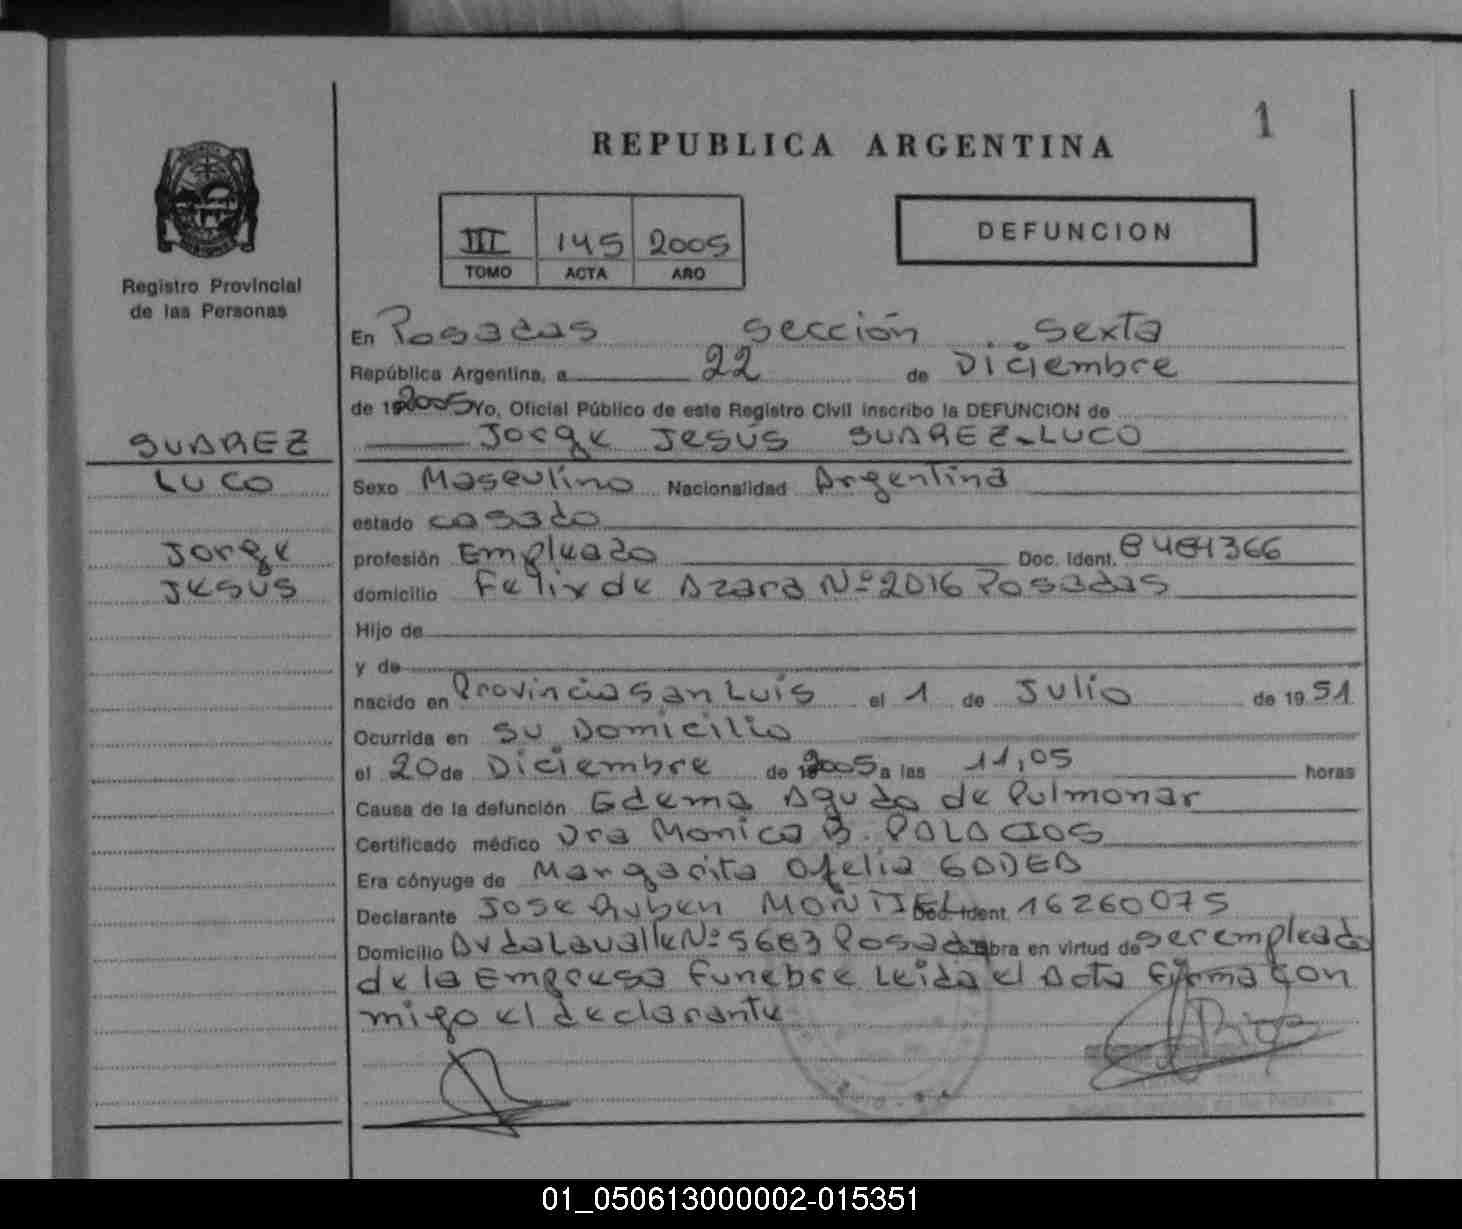 1
REPUBLICA ARGENTINA
III 145 2005
TOMO ACTA AÑO
DEFUNCION
Registro Provincial
de las Personas
En Posadas Sección Sexta
República Argentina, a 22 de Diciembre
de 19 2005 Yo, Oficial Público de este Registro Civil inscribo la DEFUNCION de
Jorge Jesús SUAREZ-LUCO
SUAREZ
LUCO
Jorge
Jesus
Sexo Masculino Nacionalidad Argentina
estado casado
profesión Empleado Doc. Ident. 8484366
domicilio Felix de Azara Nº 2016 Posadas
Hijo de
y de
nacido en Provincia San Luis el 1 de Julio de 1951
Ocurrida en su Domicilio
el 20 de Diciembre de 2005 a las 11,05 horas
Causa de la defunción Edema Agudo de Pulmonar
Certificado médico Dra Monica B. PALACIOS
Era cónyuge de Margarita Ofelia GADEA
Declarante Jose Ruben MONTIEL Doc. Ident. 16260075
Domicilio Avda Lavalle Nº 5683 Posadas obra en virtud de ser empleado
de la Empresa Funebre Leida el Acta firma con
migo el declarante
01_050613000002-015351